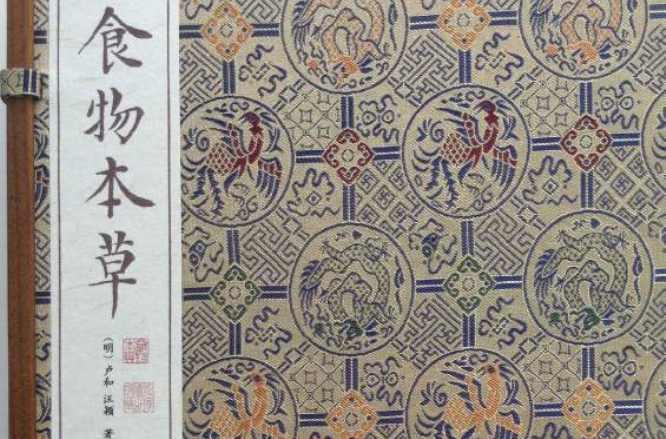 食物本草
(明)卢和 汪颖 著